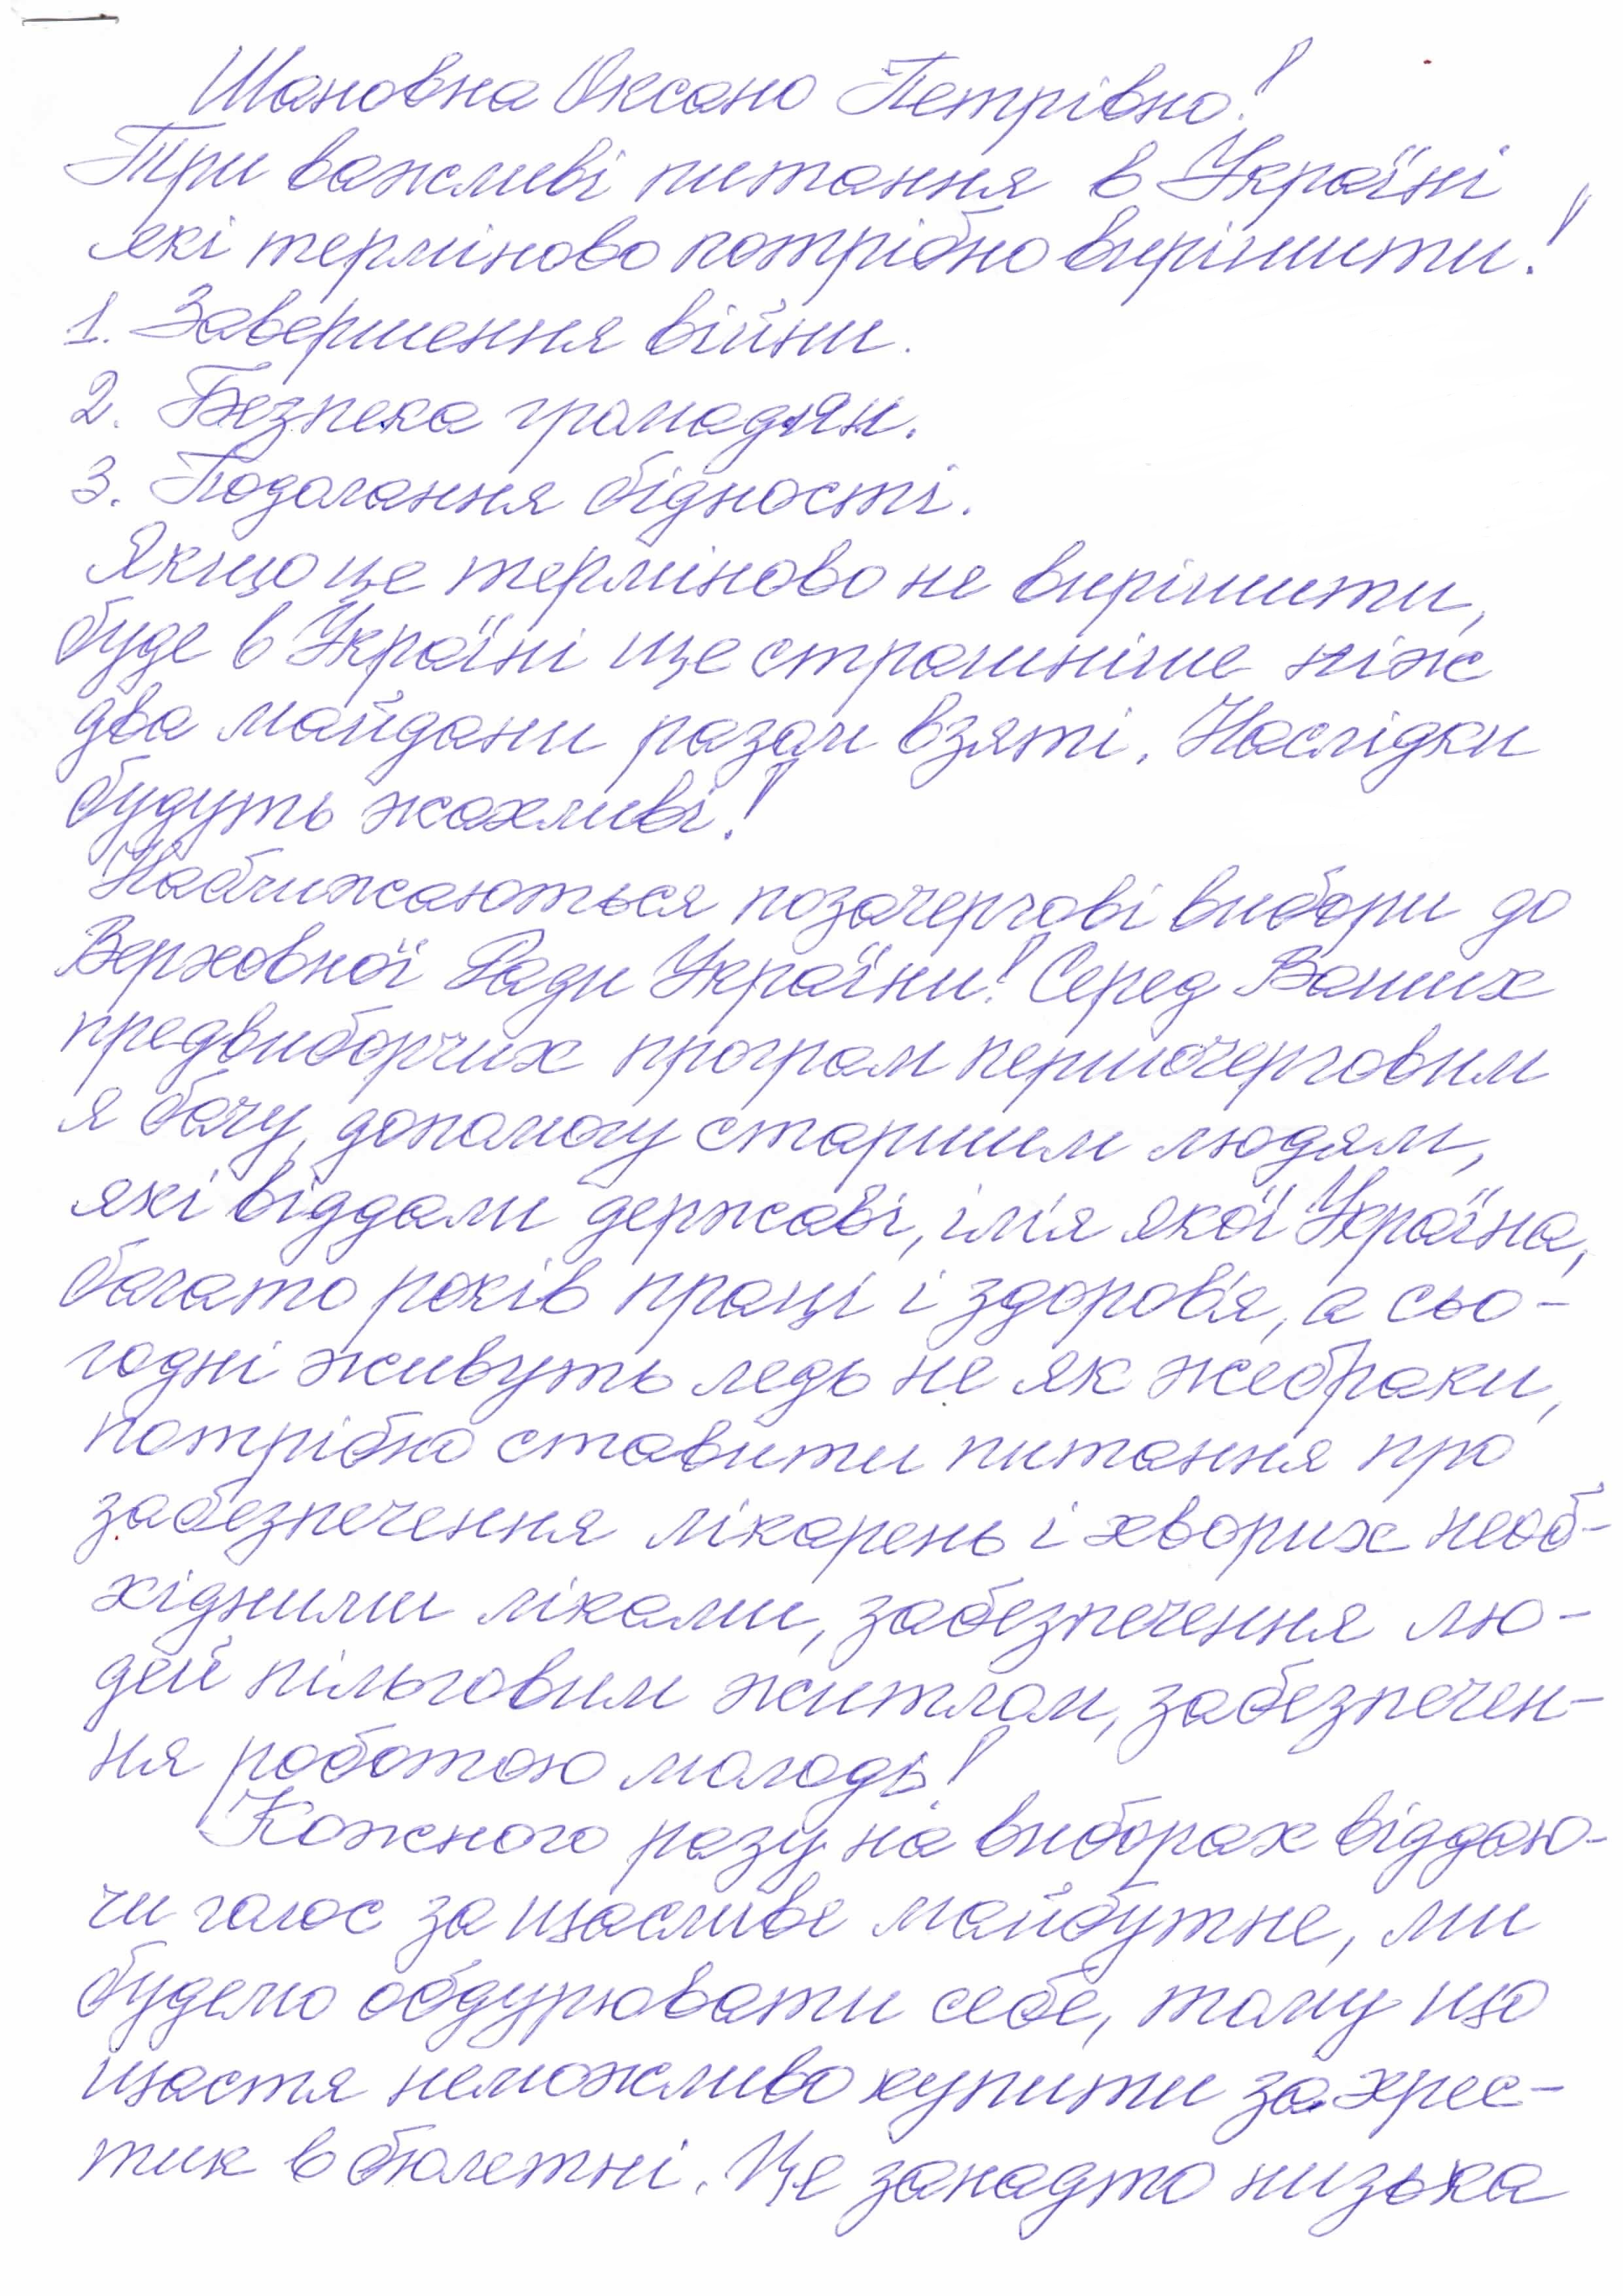 Шановна Оксано Петрівно!
Три важливі питання в Україні
які терміново потрібно вирішити!
1. Завершення війни.
2. Безпека громадян.
3. Подолання бідності.
Якщо це терміново не вирішити,
буде в Україні ще страшніше ніж
два майдани разом взяті. Наслідки
будуть жахливі!
Наближаються позачергові вибори до
Верховної Ради України! Серед Ваших
предвиборчих програм першочерговим
я бачу, допомогу старшим людям,
які віддали державі, ім'я якої Україна,
багато років праці і здоров'я, а сьо-
годні живуть ледь не як жебраки,
потрібно ставити питання про
забезпечення лікарень і хворих необ-
хідними ліками, забезпечення лю-
дей пільговим житлом, забезпечен-
ня роботою молодь!
Кожного разу на виборах віддаю-
чи голос за щасливе майбутне, ми
будемо обдурювати себе, тому що
щастя неможливо купити за хрес-
тик в бюлетні. Це занадто низька